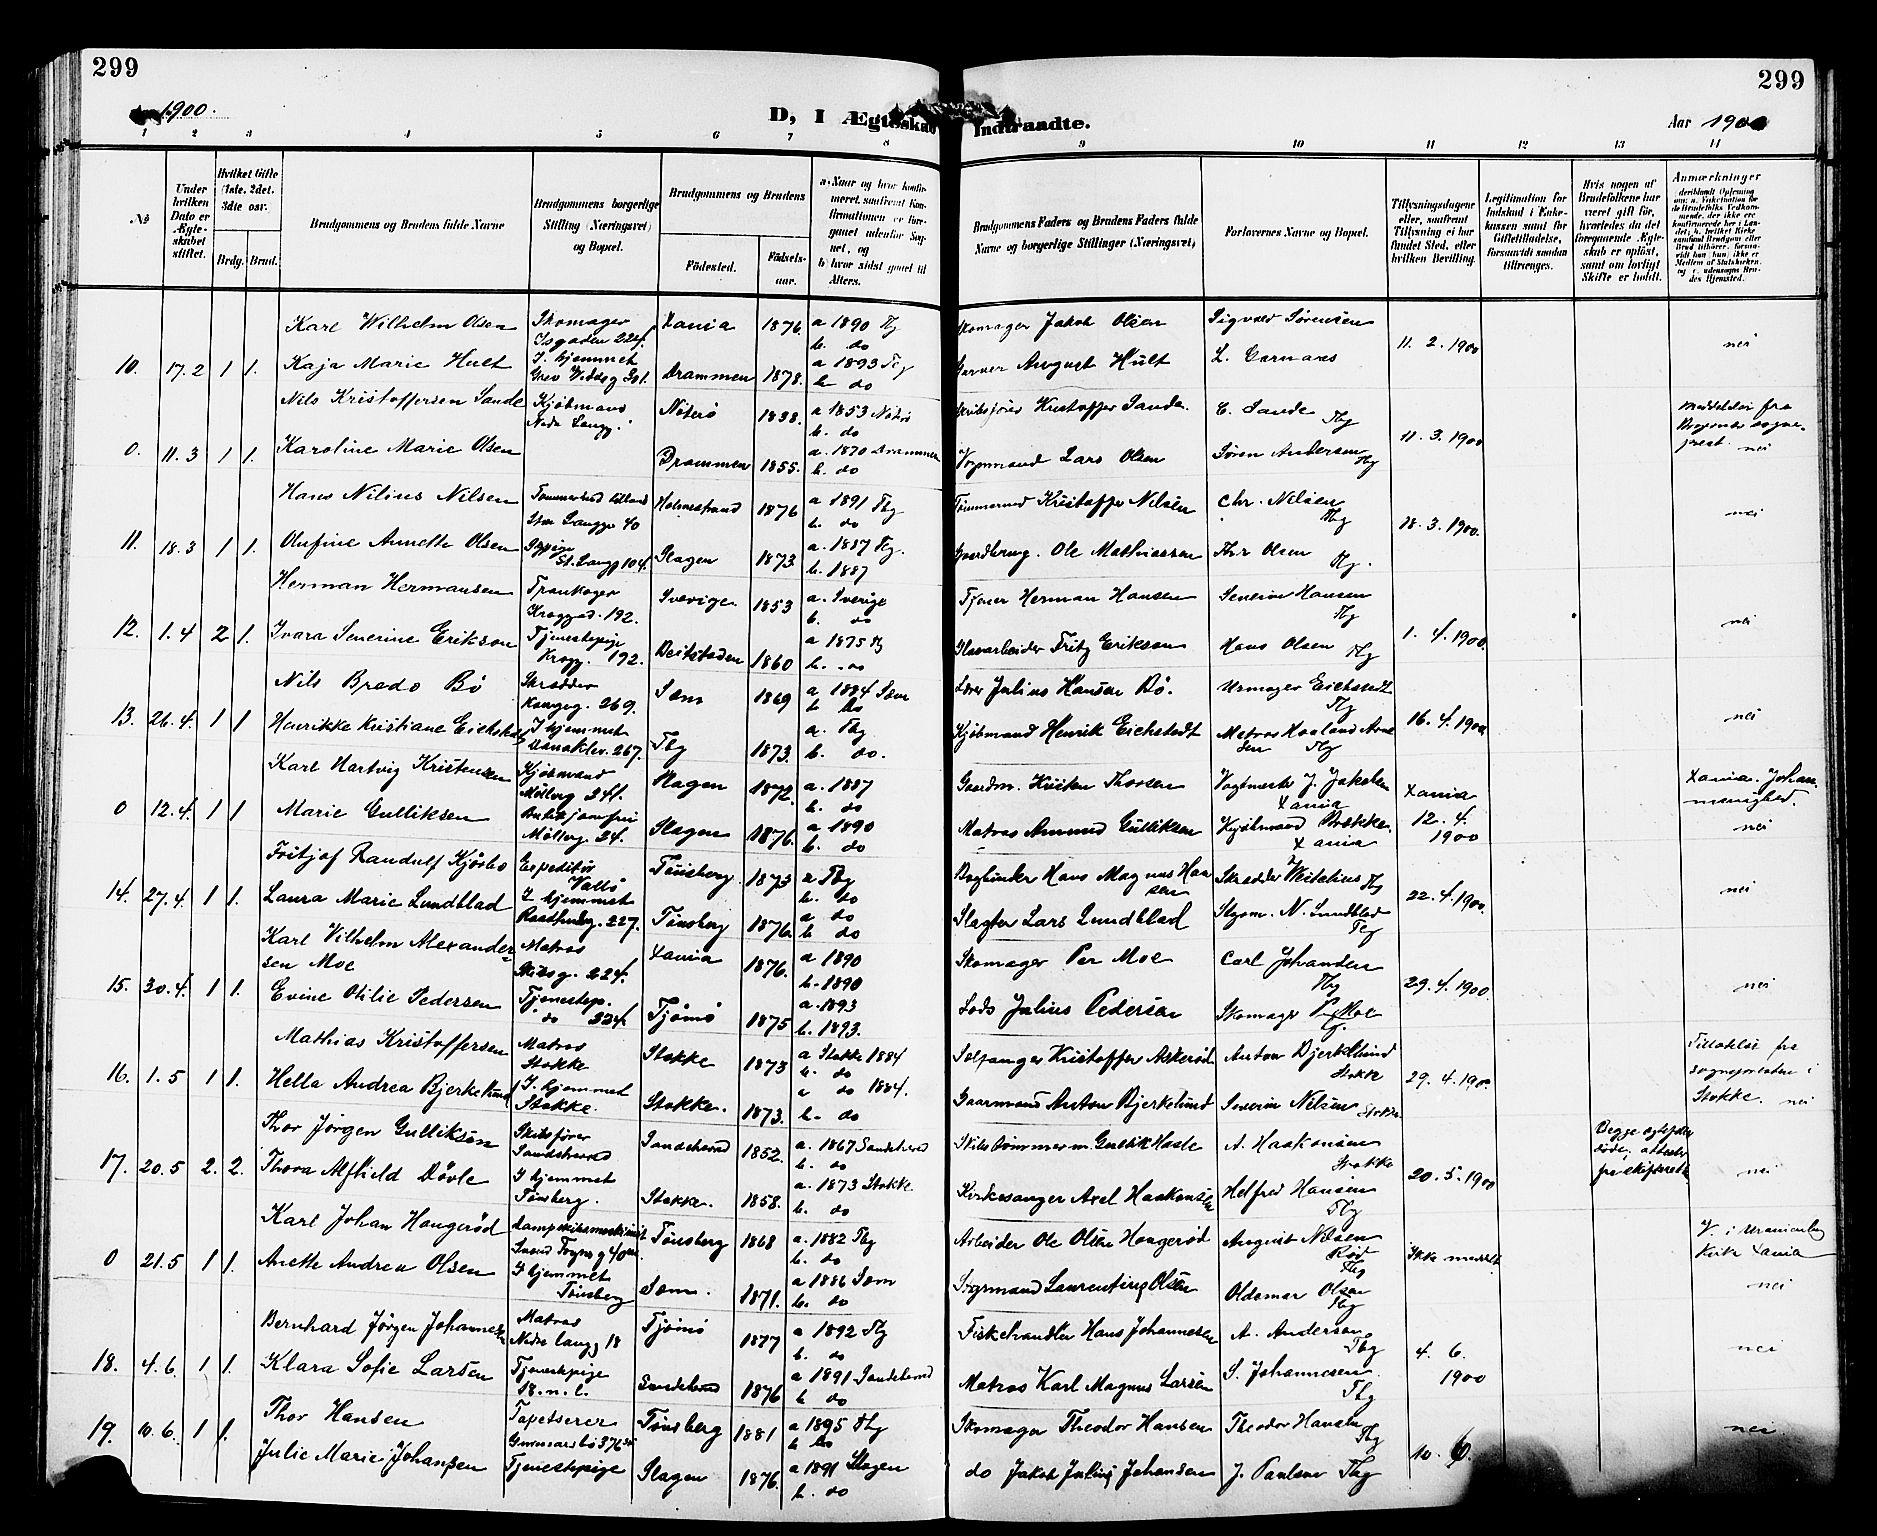 299
299
1900.
D, I Ægteskab Indtraadte.
Aar 1900
1 2 3 4 5 6 7 8 9 10 11 12 13 14
No
Under hvilken Dato er Ægteskabet stiftet.
Hvilket Gifte (1ste, 2det, 3die osv.
Brdg. Brud.
Brudgommens og Brudens fulde Navne
Brudgommens borgerlige Stilling (Næringsvei) og Bopæl.
Brudgommens og Brudens
Födested.
Fødselsaar.
a) Naar og hvor konfirmeret, saafremt Konfirmationen er foregaaet udenfor Sognet, og
b) hvor sidst gaaet til Alters.
Brudgommens Faders og Brudens Faders fulde Navne og borgerlige Stillinger (Næringsvei)
Forlovernes Navne og Bopæl.
Tillysningsdagene eller, saafremt Tillysning ei har fundet Sted, efter hvilken Bevilling.
Legitimation for Indskud i Enkekassen samt for Giftetilladelse, forsaavidt saadan tiltrænges.
Hvis nogen af Brudefolkene har været gift før, hvorledes da det foregaaende Ægteskab er opløst, samt om lovligt Skifte er holdt.
Anmærkninger
Karl Wilhelm Olsen Skomager Xania 1876. a 1890 Tbg Skomager Jakob Olsen Sigvald Sørensen
Isgaden 224. b. do 11. 2. 1900 nei
10. 17.2 1 1. Kaja Marie Hult I hjemmet Drammen 1878. a 1893 Tbg Garver August Hult
b do
Nils Kristoffersen Sande Kjöbmand Nöterö 1838. a 1853 Nöterö Skibsfører Kristoffer Sande. C. Sande Tbg meddelelse fra
Nedre Langg. b. do 11. 3. 1900
0. 11.3 1 1. Karoline Marie Olsen Drammen 1855. a. 1870 Drammen Vognmand Lars Olsen Sören Andersen Tbg nei
b. do
Hans Nilius Nilsen Holmestrand 1876 a 1891 Tbg Tömmermand Kristoffer Nilsen Chr. Nilsen Tbg nei
Stor Langg. 40 b. do 18. 3. 1900.
11. 18.3 1 1. Olufine Annette Olsen St. Langg 104. Slagen 1873. a. 1887 Tbg. Gaardbrug. Ole Mathiassen Thr Olsen Tbg.
b. 1887
Herman Hermansen Trankoger Sverige. 1853 a. Sverige Tjener Herman Hansen Severin Hansen Tbg nei
192. b. do 1. 4. 1900.
12. 1.4 2 1. Ivara Severine Erikson Tjenestepige 1860 a 1875 Tbg Fritz Erikson Hans Olsen Tbg
192. b. do
Nils Bredo Bö Skrædder Sæm 1869 a. 1884 Sæm Julius Hansen Bö. Urmager Eichstedt Tbg
Kongeg. 269. b do 16. 4. 1900 nei
13. 26.4. 1 1 Henrikke Kristiane I hjemmet Tbg 1873. a. Tbg Kjöbmand Henrik Eichstedt Matros Haaland Arnesen Tbg
267. b. do.
Karl Hartvig Kristensen Kjöbmand Slagen 1872. a. 1887 Gaardm. Kristen Thorsen J. Jakobsen Xania Xania Xania. Johan.
Möllerg 24. b. do menighed.
0 12.4. 1 1 Marie Gulliksen Möllerg. 24. Slagen 1876. a 1890 Matros Amund Gulliksen Kjöbmand Brække. Xania 12. 4. 1900 nei
b. do
Fritjof Randulf Kjørbo Expeditör Vallö Tönsberg. 1873 a Tbg Bogbinder Hans Magnus Hansen Skrædder Westelius Tbg
b. do 22. 4. 1900. nei
14. 27.4. 1 1. Laura Marie Lundblad I hjemmet Tönsberg 1876. a do Slagter Lars Lundblad Styrm. N. Lundblad Tbg
227. b do
Karl Vilhelm Alexandersen Moe Matros Xania 1876. a 1890 Skomager Per Moe Carl Johansen Tbg
224. b. 1890 29. 4. 1900. nei
15. 30.4. 1 1. Evine Otilie Pedersen Tjenestep. Tjömö 1875 a. 1893 Lods Julius Pedersen Skomager P. Moe
do 224. b. 1893.
Mathias Kristoffersen Matros Stokke Stokke 1873 a Stokke 1884 Sælfanger Kristoffer Askeröd Anton Bjerkelund Stokke Tilladelse fra
b. do 29. 4. 1900 sognepresten i
16. 1.5 1 1. Hella Andrea Bjerkelund I hjemmet Stokke. Stokke. 1873. a do 1884. Gaarmand Anton Bjerkelund Severin Nilsen Stokke Stokke. nei
b. do
Thor Jörgen Gulliksen Skibsförer Sandeherred 1852. a. 1867 Sandeherred Skibstömmerm. Gullik Hasle A. Haakonsen Stokke Begge ægtefeller
Sandeherred b. do 20. 5. 1900 døde, attester
17. 20.5 2. 2. Thora Alfhild Dövle I hjemmet Tönsberg. Stokke. 1858. a. 1873 Stokke Kirkesanger Axel Haakonsen Helfred Hansen Tbg fra skifteret nei
b. do
Karl Johan Haugeröd Tönsberg 1868 a. 1882 Tbg Arbeider Ole Olsen Haugeröd August Nilsen Röd Tbg V. i Uranienborg
b. do Ikke meddelt Kirke Xania
0 21.5 1 1. Anette Andrea Olsen I hjemmet Tönsberg Sæm. 1871. a 1886 Sæm Styrmand Laurentius Olsen Oldemar Olsen Tbg nei
b. do
Bernhard Jörgen Johannesen Matros Tjömö 1877 a 1892 Tbg Fiskehandler Hans Johannesen A. Andersen Tbg
Nedre Langg 18 b. do 4. 6. 1900 nei
18. 4.6. 1 1. Klara Sofie Larsen Tjenestepige Sandeherred 1876 a 1891 Sandeherred Matros Karl Magnus Larsen S. Johannesen. Tbg
18. n. l. b. do
Thor Hansen Tapetserer Tönsberg 1881 a 1895 Tbg Skomager Theodor Hansen Theodor Hansen Tbg
b do 10. 6. nei
19. 10.6. 1 1. Julie Marie Johansen Tjenestepige Slagen 1876. a 1891 Slagen do Jakob Julius Johansen J. Paulsen Tbg
b. do